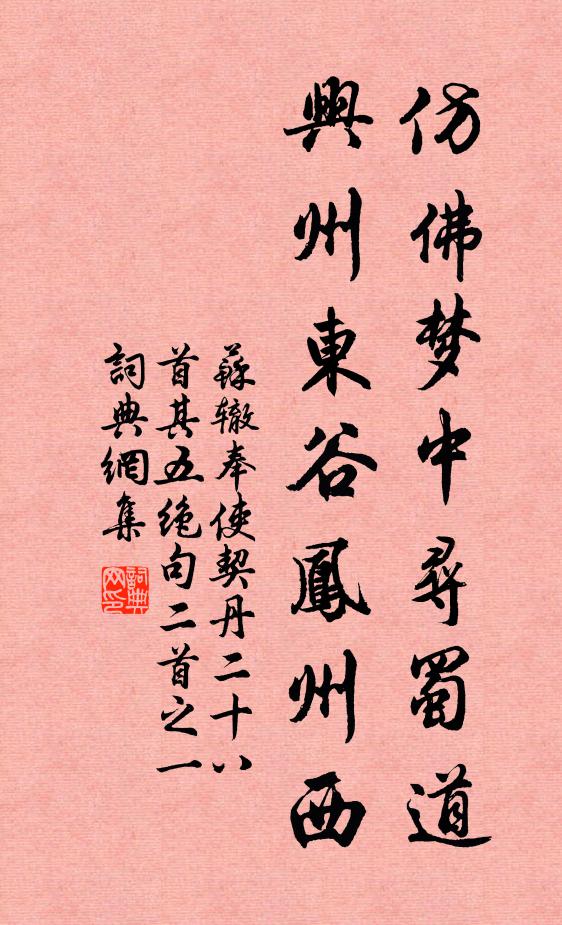 仿佛梦中尋蜀道
興州東谷鳳州西
蘇辙奉使契丹二十八
首其五绝句二首之一
詞典網集
詞典网印